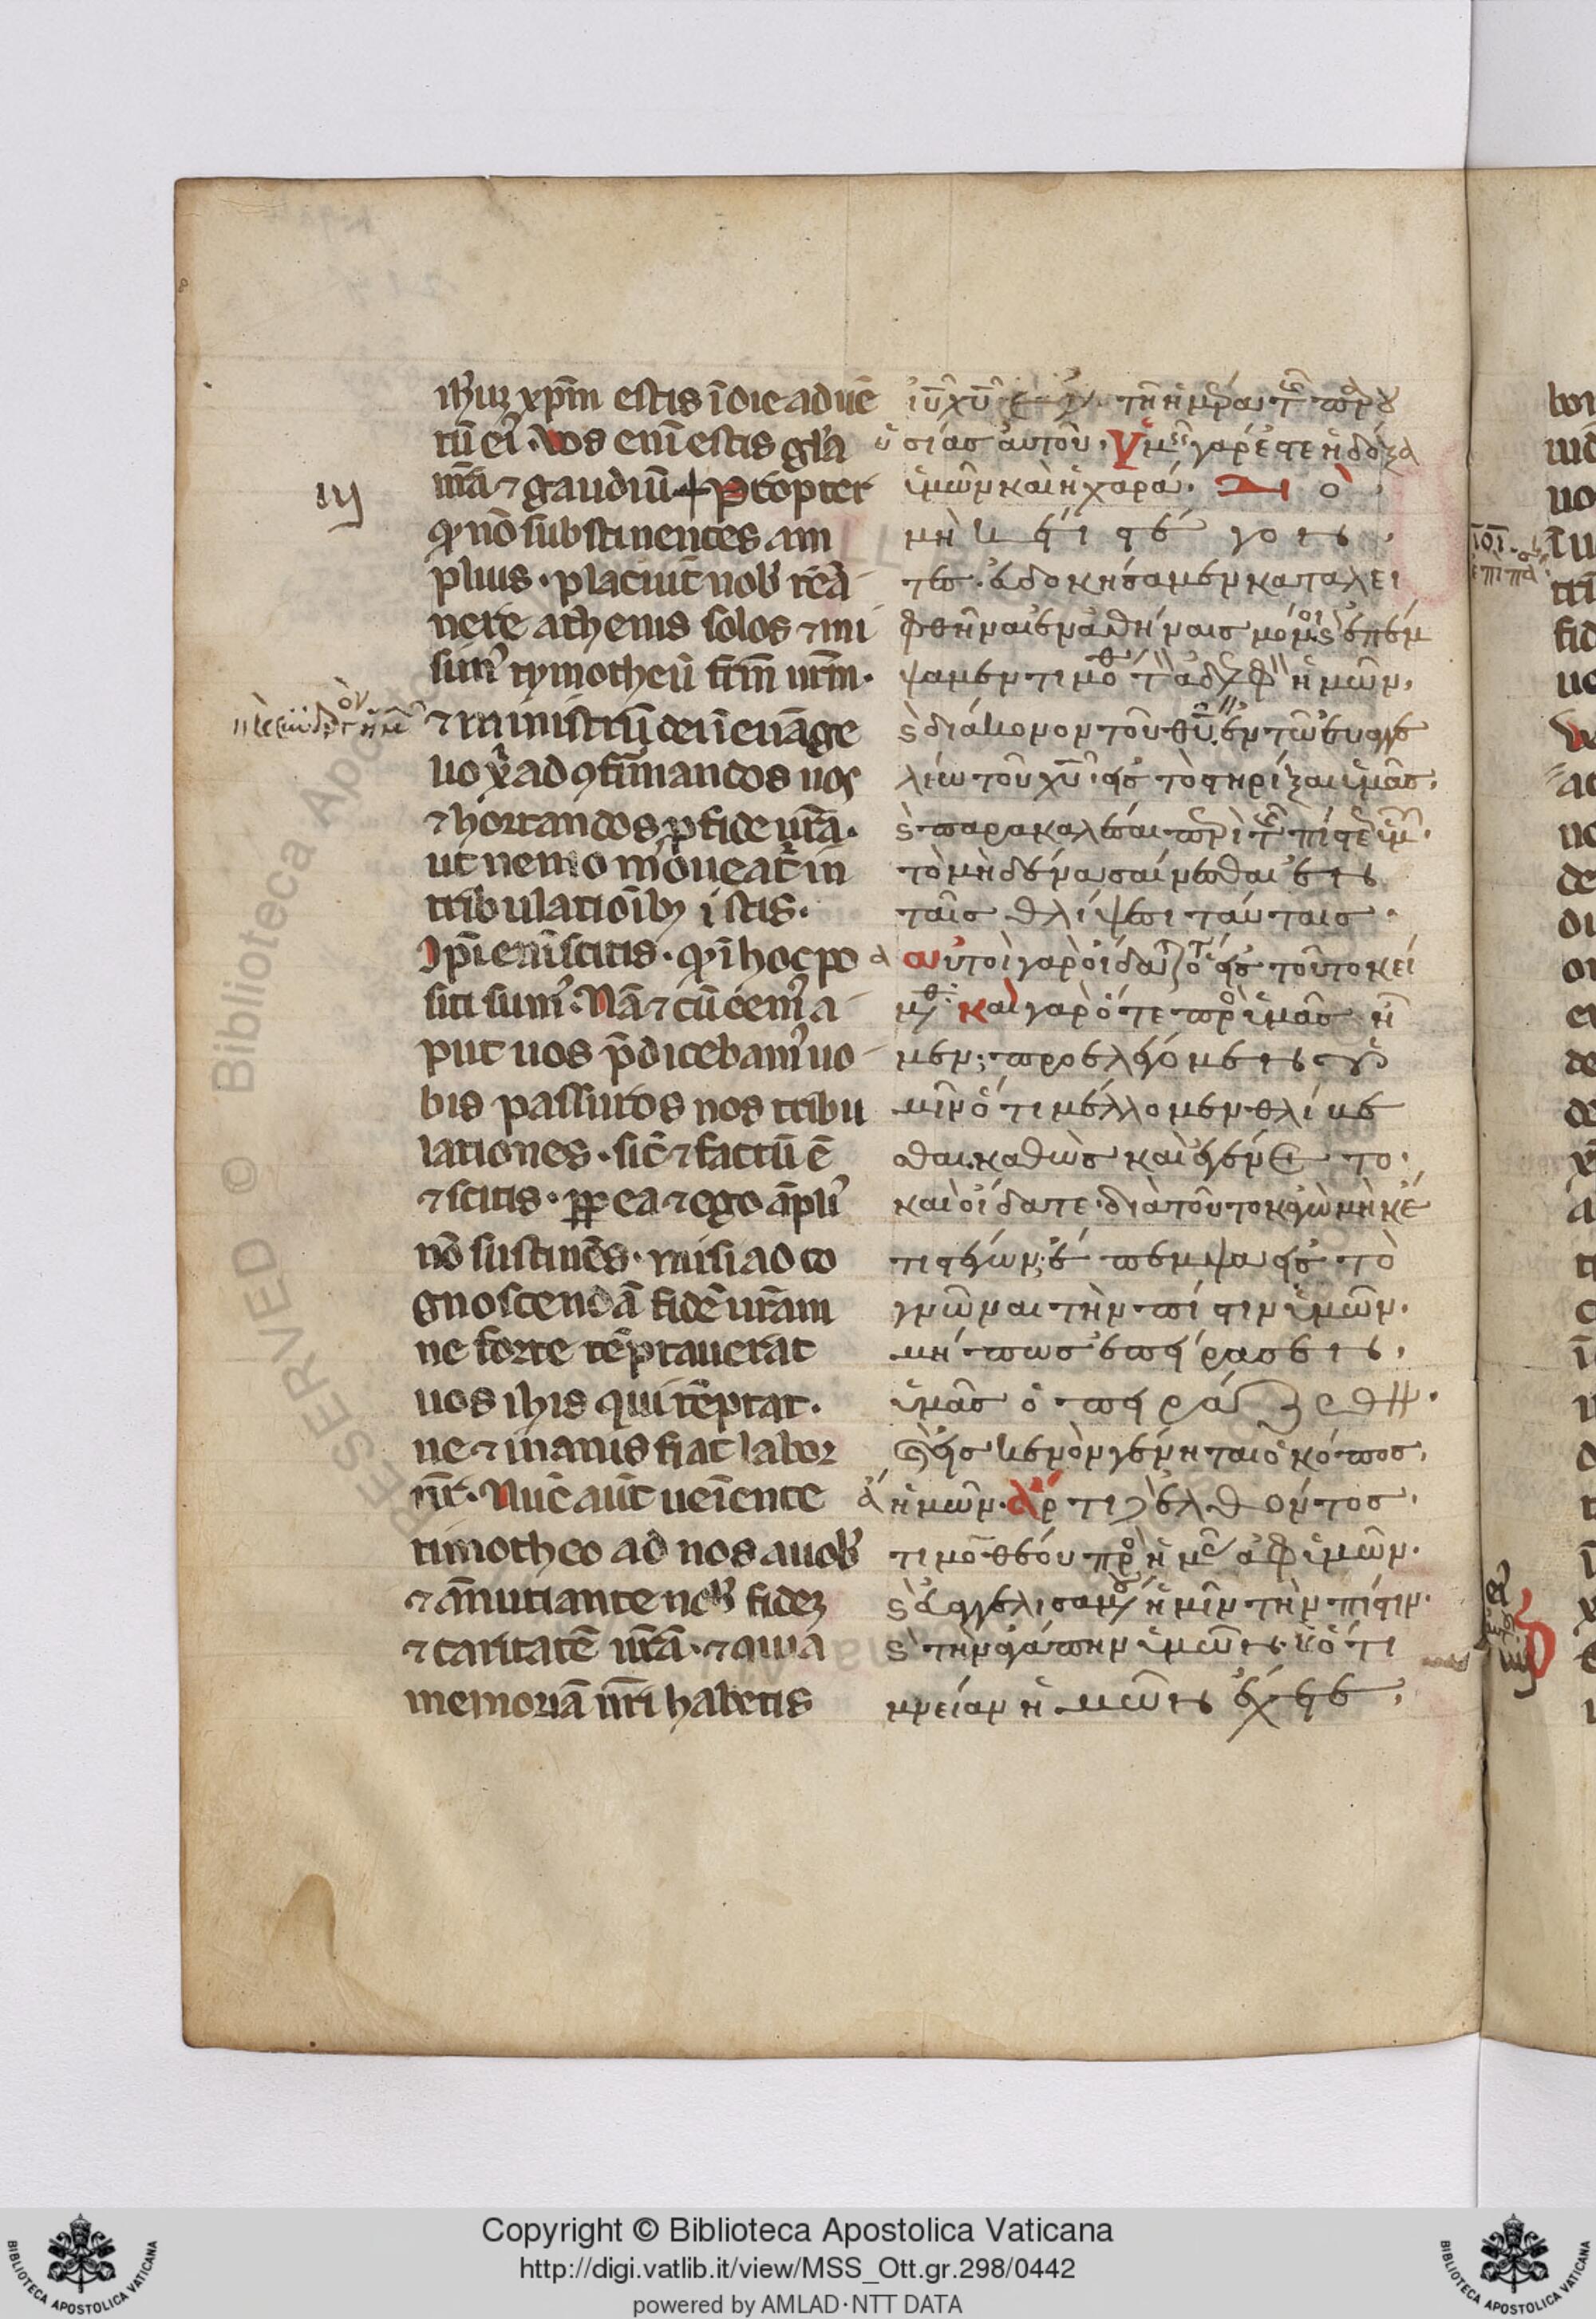 ih̅uȝ xp̅m estis ı̅ die aduē
tū eı᾽. Vos enı̅ estis gl̅a
nr̅a ⁊ gaudiū ⁊ Propter
iij
qd̅ nō substinentes am
plius. placuit nob̅ rēa
nere athenis solos ⁊ mi
sim᾽ tymotheū fr̅m nr̅m.
⁊ ministrū dei ı̅ euāge
lio x̅ ad ꝯfirmandos uos
⁊ hortandos ꝑ fide ur̅a.
ut nemo moueat᷑ in
tribulatioı̅bȝ istis.
Ip̅i enı̅ scitis. qd̅ ı̅ hoc po
siti sum᾽. Nā ⁊ cū eēm᾽ a
put uos p̅dicebam᾽ uo
bis passuros nos tribu
lationes. sic̅ ⁊ factū ē
⁊ scitis. ꝓp̅ ea ⁊ ego āpli᾽
nō sustinēs. misi ad co
gnoscendā fidē ur̅am
ne forte tēptauerat
uos ih̅is qui tēptat.
ne ⁊ inanis fiat labor
nr̅. Nūc aūt ueı̅ente
timotheo ad nos a uob̅
⁊ ānuntiante nob̅ fidēȝ
⁊ caritatē ur̅a. ⁊ quia
memoriā nr̅i habetis
ἰυ̅ χυ̅ ἐν τῆ ἡμέραι τῆς παρου
σίας αὐτοῦ. Ὑμεῖς γάρ ἐστε ἡ δόξα
ἡμῶν καὶ ἡ χαρά. Διὸ
μὴ κέτι στέγοντες
εὐδοκήσαμεν καταλει
φθῆναι ἐν ἀθήναις μόνοι ϗ ἐπέμ
ψαμεν τιμόθ τὸν ἀδελφὸν ἡμῶν,
ϗ διάκονον τοῦ θυ̅. ἐν τῶ εὐαγγε
λίω τοῦ χυ̅ εἰς τὸ στηρίξαι ὑμᾶς,
ϗ παρακαλέσαι περὶ τῆς πίστεως ὑμ̅.
τὸ μὴ δένα σαίνεσθαι ἐν
ταῖς θλίψεσι ταύταις.
αὐτοὶ γὰρ οἴδατε ὅτι εἰς τοῦτο κεί
μεθα· καὶ γὰρ ὅτε πρὸς ὑμᾶς ἦ
μεν, προελέγομεν ὑ
μῖν ὅτι μέλλομεν θλίβε
σθαι. καθὼς καὶ ἐγένετο.
καὶ οἴδατε. διὰ τοῦτο κἀγὼ μὴ κέ
τι στέγων, ἔπεμψα εἰς τὸ
γνῶναι τὴν πίστιν ὑμῶν.
μή πως ἐπείρασεν,
ὑμᾶς ὁ πειράζων.
ϗ εἰς κενὸν γένηται ὁ κόπος,
ἡμῶν. Ἄρτι δὲ ἐλθόντος.
τιμοθέου πρὸς ἡμᾶς ἀφ ὑμῶν.
ϗ εὐαγγελισαμένου ἡμῖν τὴν πίστιν.
ϗ τὴν ἀγάπην ὑμῶν. ϗ ὅτι
μνείαν ἡμῶν ἔχετε,
Copyright © Biblioteca Apostolica Vaticana
http://digi.vatlib.it/view/MSS_Ott.gr.298/0442
powered by AMLAD·NTT DATA